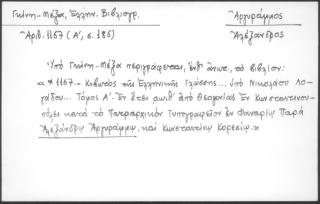 Γκίνη-Μέξα, Ἑλλην. Βιβλιογρ.
Ἀργυράμμος
Ἀριθ. 1167 (Α', σ. 186)
Ἀλέξανδρος
Ὑπὸ Γκίνη-Μέξα περιγράφεται, ἔνθ' ἀνωτ., τὸ βιβλίον:
"* 1167.- Κιβωτὸς τῆς Ἑλληνικῆς Γλώσσης... ὑπὸ Νικολάου Λο-
γάδου... Τόμος Α'. Ἐν ἔτει ͵αωιθ' ἀπὸ Θεογονίας Ἐν Κωνσταντινου-
πόλει κατὰ τὸ Πατριαρχικὸν Τυπογραφεῖον ἐν Φαναρίῳ Παρὰ
Ἀλεξάνδρῳ Ἀργυράμμῳ, καὶ Κωνσταντίνῳ Κορεσίῳ.»